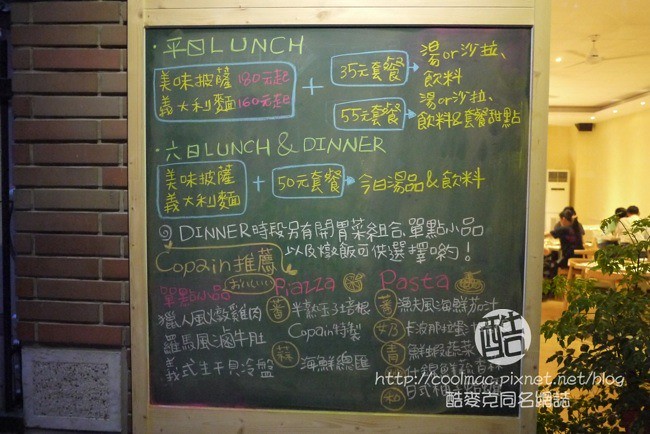 ·平日LUNCH
美味披薩180元起
義大利麵160元起
+
35元套餐
湯or沙拉、
飲料
55元套餐
湯or沙拉、
飲料&套餐甜點
·六日LUNCH & DINNER
美味披薩
義大利麵
+
50元套餐
今日湯品&飲料
DINNER時段另有開胃菜組合、單點小品
以及燉飯可供選擇喲!
Copain推薦
おいしい
單點小品
獵人風燉雞肉
羅馬風滷牛肚
義式生干貝冷盤
Piazza
蕃 半熟玉子培根
Copain特製
蒜 海鮮總匯
Pasta
蕃 漁夫風海鮮茄汁
奶 卡波那拉
青 鮮蝦蔬菜
日式
酷
http://coolmac.pixnet.net/blog
酷麥克同名網誌